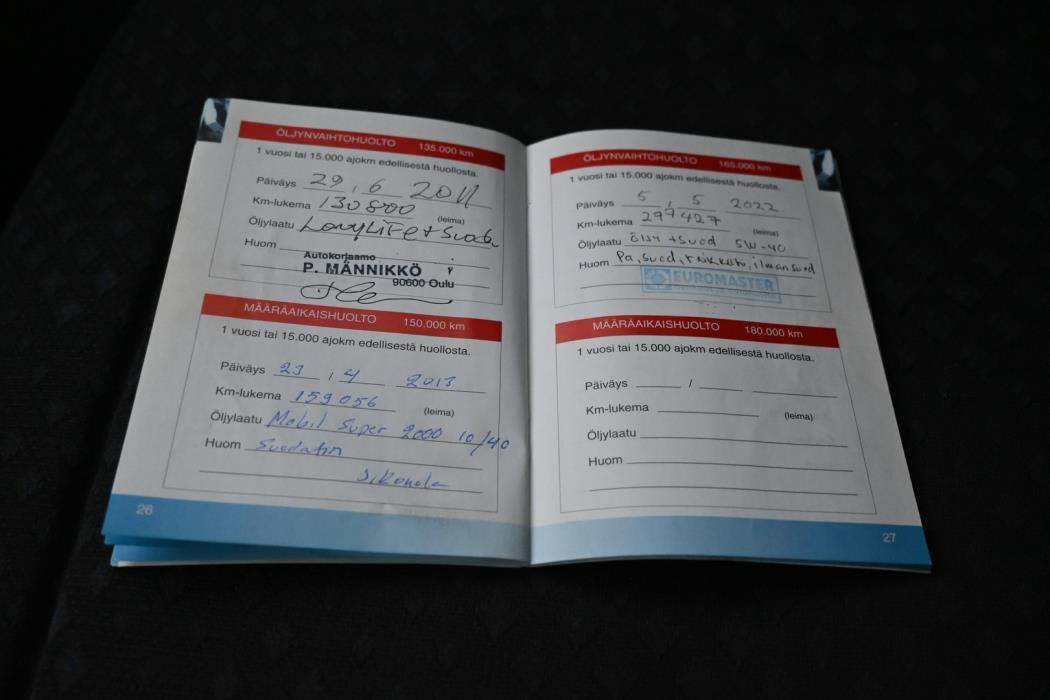 ÖLJYNVAIHTOHUOLTO 135.000 km
1 vuosi tai 15.000 ajokm edellisestä huollosta.
Päiväys 29, 6 2011
Km-lukema 130800 (leima)
Öljylaatu LongLife + Suod
Huom
Autokorjaamo
P. MÄNNIKKÖ
90600 Oulu
MÄÄRÄAIKAISHUOLTO 150.000 km
1 vuosi tai 15.000 ajokm edellisestä huollosta.
Päiväys 23 / 4 2013
Km-lukema 159056 (leima)
Öljylaatu Mobil Super 2000 10/40
Huom Suodatin
26
ÖLJYNVAIHTOHUOLTO 165.000 km
1 vuosi tai 15.000 ajokm edellisestä huollosta.
Päiväys 5 / 5 2022
Km-lukema 297427 (leima)
Öljylaatu öljy + suod 5W-40
Huom Pa, suod, raikkato, ilman suod
EUROMASTER
MÄÄRÄAIKAISHUOLTO 180.000 km
1 vuosi tai 15.000 ajokm edellisestä huollosta.
Päiväys /
Km-lukema (leima)
Öljylaatu
Huom
27